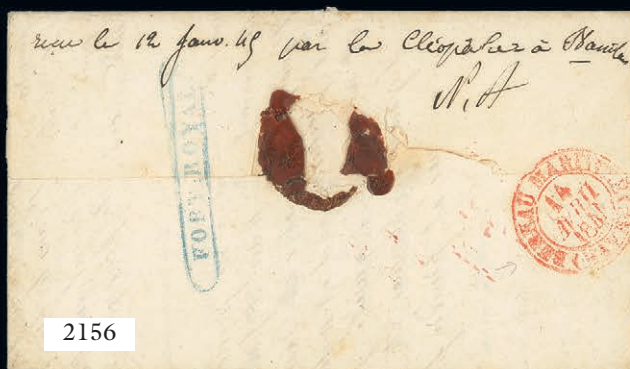 reçu le 12 Janv. 45 par la Cléopâtre à
N. A
FORT-ROYAL
BUREAU MARITIME
14
AVRIL
2156